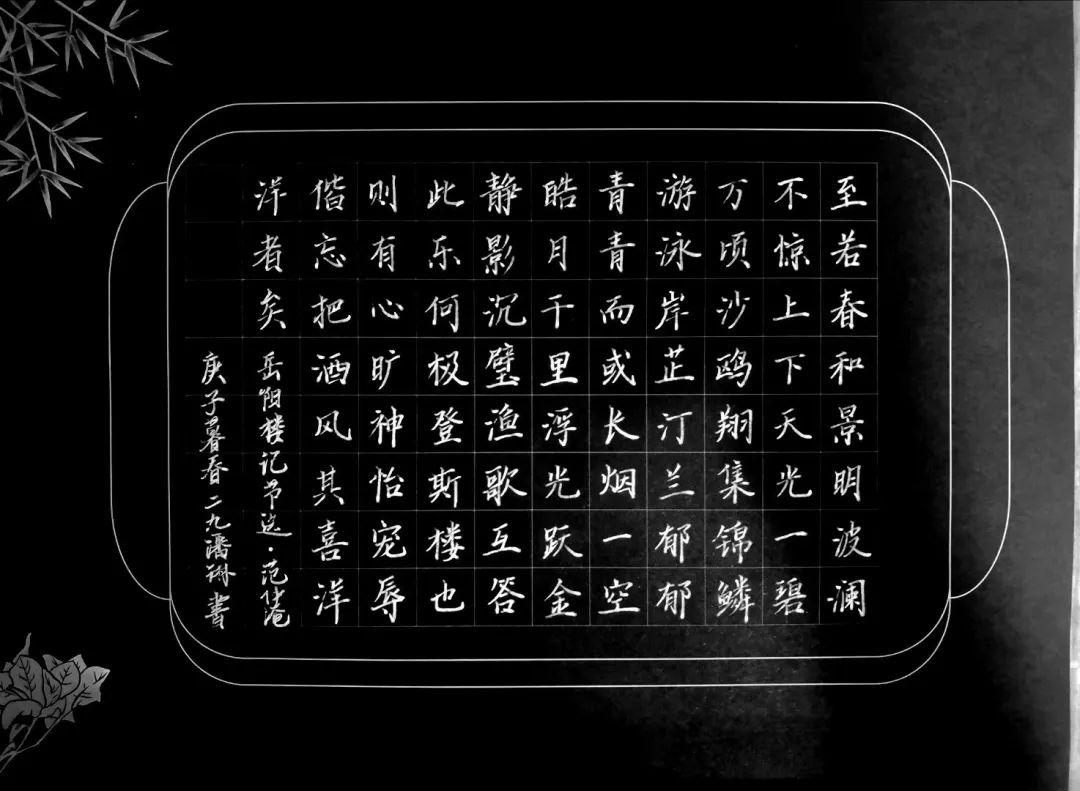 至若春和景明波澜
不惊上下天光一碧
万顷沙鸥翔集锦鳞
游泳岸芷汀兰郁郁
青青而或长烟一空
皓月千里浮光跃金
静影沉璧渔歌互答
此乐何极登斯楼也
则有心旷神怡宠辱
偕忘把酒风其喜洋
洋者矣岳阳楼记节选·范仲淹
庚子暮春二九潘琳書